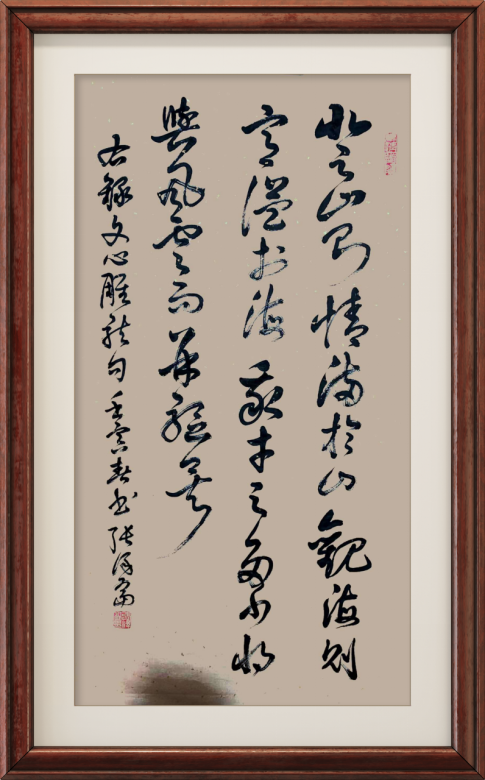 登山則情滿於山觀海則
意溢於海我才之多少將
與風雲而并驅矣
右錄文心雕龍句壬寅春書張